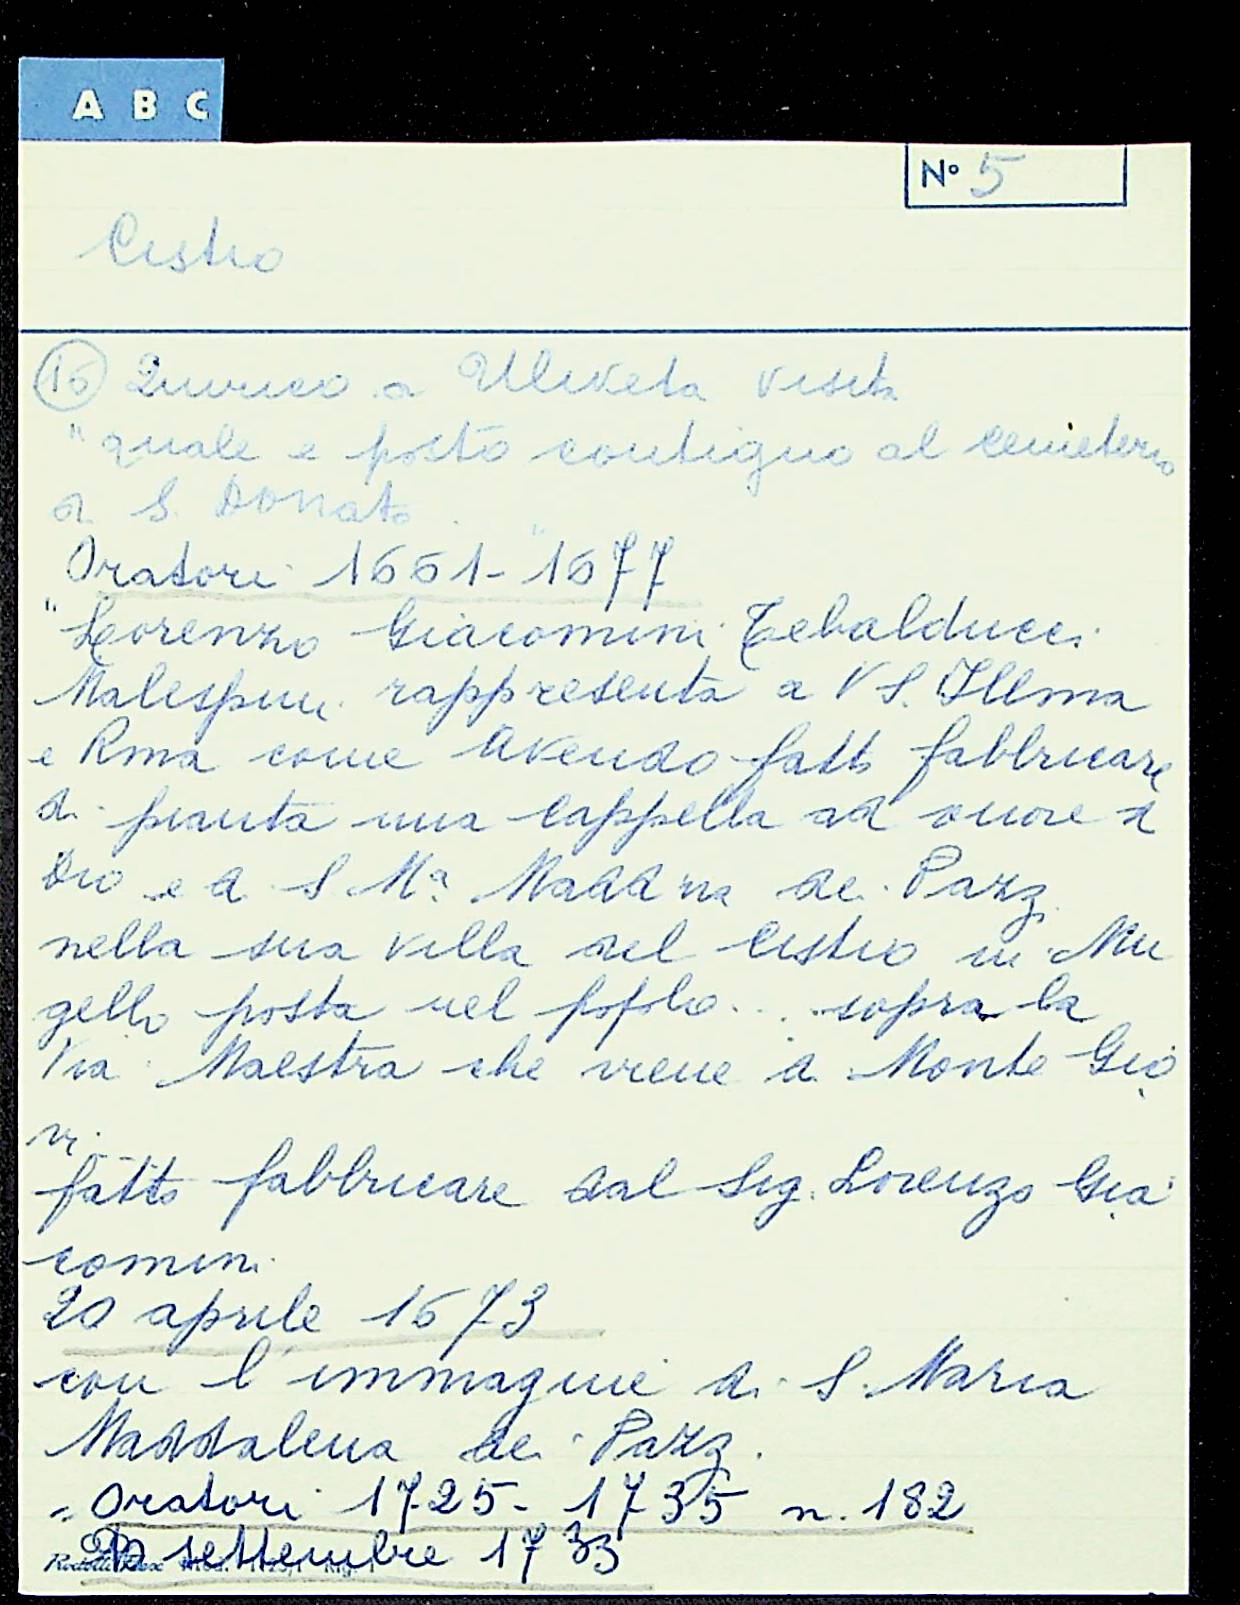 A B C
N° 5
Cistio
16 Quirico a Uliveta visita
"quale e posto contiguo al cemeterio
di S. Donato. "
Oratori 1661-1677
"Lorenzo Giacomini Tebalducci
Malespini rappresenta a V S. Illma
e Rma come avendo fatto fabbricare
di pianta una cappella ad onore di
Dio e di S Mª Maddna de Pazzi
nella sua villa del Cistio in Mu
gello posta nel popolo... sopra la
Via Maestra che viene di Monte Gio
vi...
fatto fabbricare dal Sig. Lorenzo Gia
comini
20 aprile 1673
con l'immagine di S. Maria
Maddalena de Pazzi.
Oratori 1725-1735 n. 182
settembre 1733